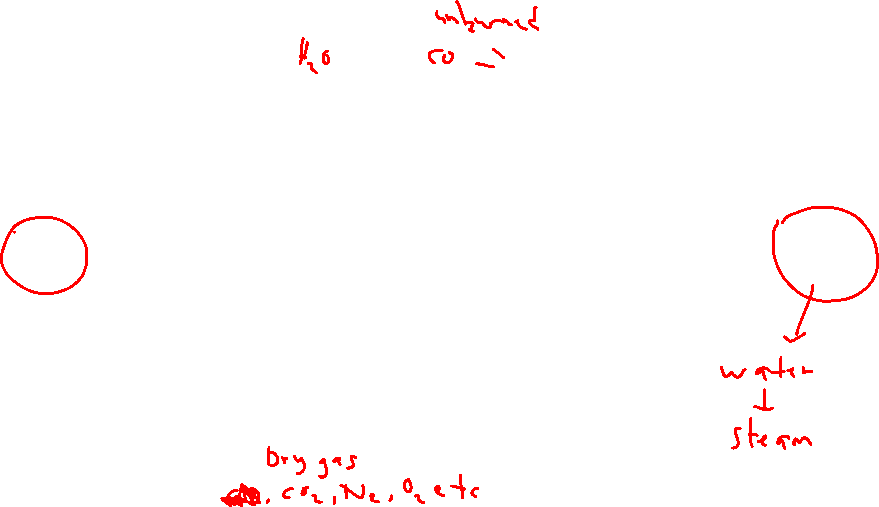 unburned
H₂O CO
water
steam
Dry gas
, CO₂, N₂, O₂ etc